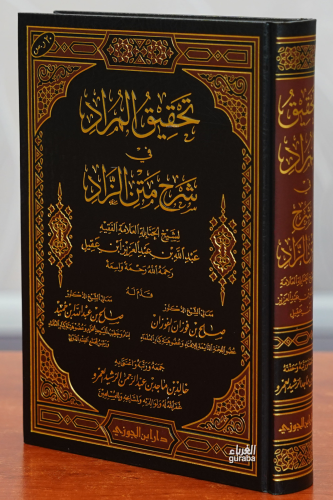 تحقيق المراد
في
شرح متن الزاد
لشيخ الحنابلة العلامة الفقيه
عبد الله بن عبد العزيز ابن عقيل
رحمه الله رحمة واسعة
قدم له
معالي الشيخ الدكتور
صالح بن فوزان الفوزان
معالي الشيخ الدكتور
صالح بن عبد الله ابن حميد
جمعه ورتبه واعتنى به
خالد بن ماجد بن عبد الرحمن الرشيد العمرو
دار ابن الجوزي
الغرباء
guraba
تحقيق
المراد
في
شرح
متن الزاد
دار ابن الجوزي